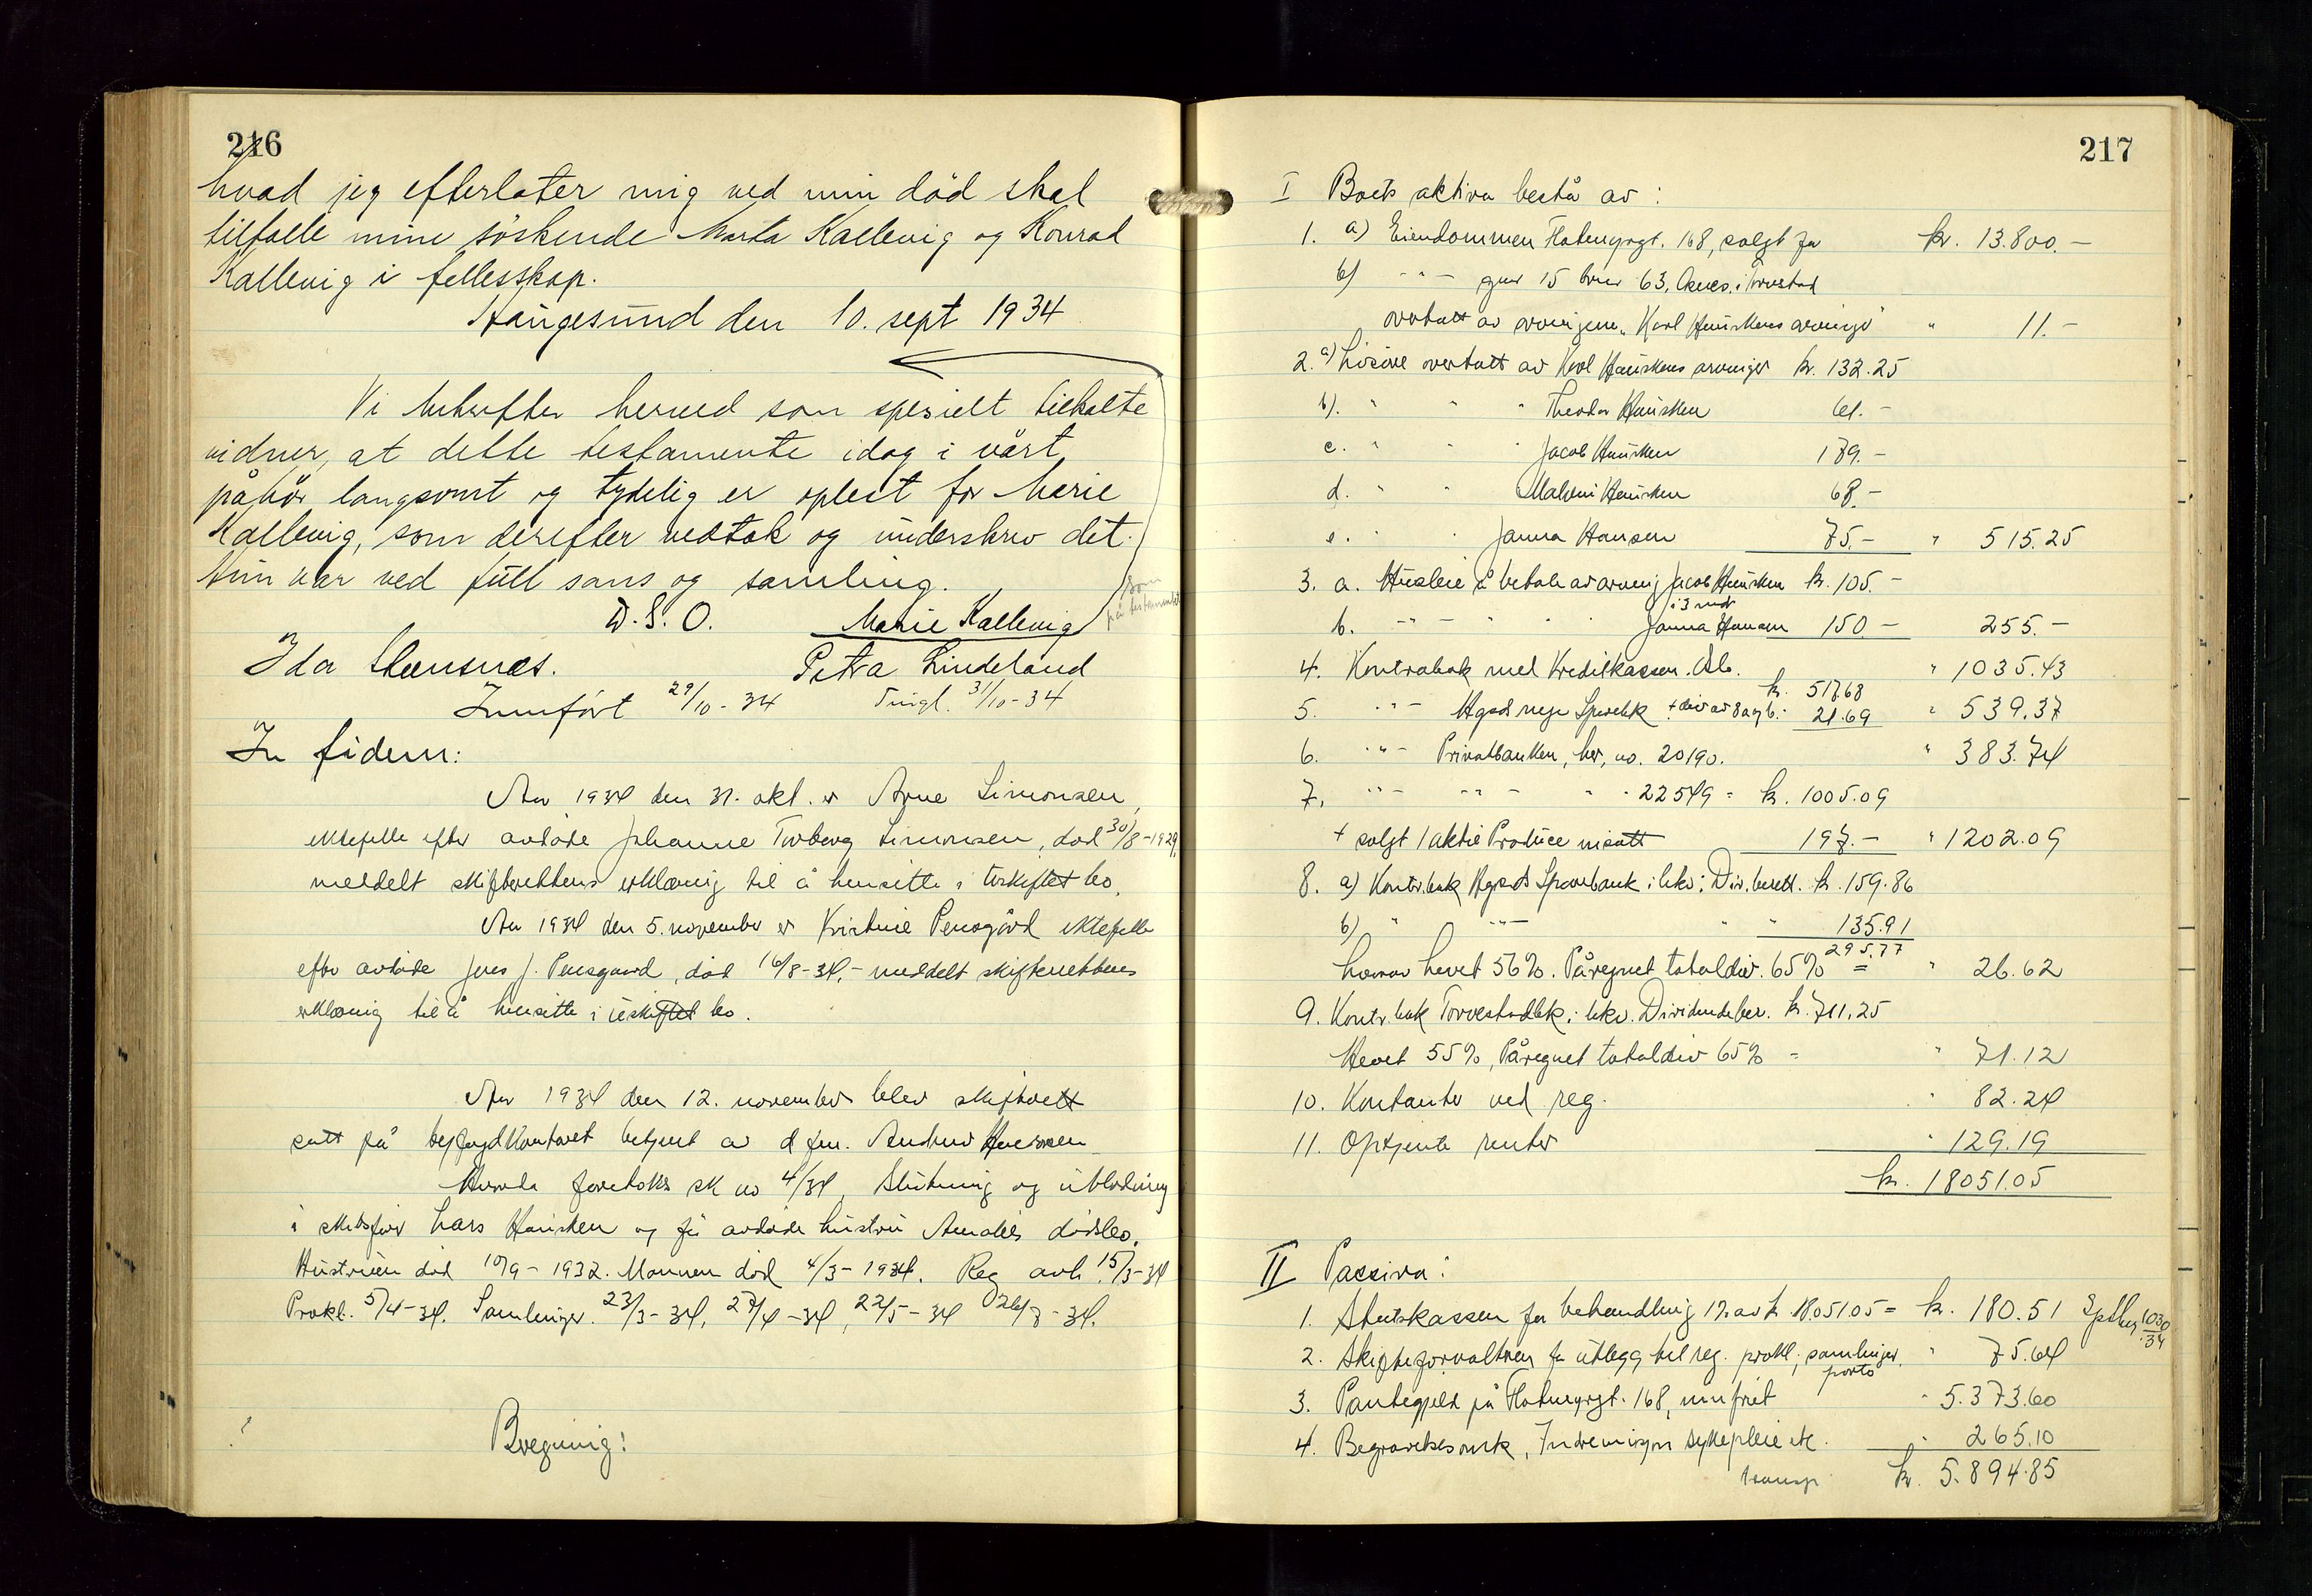 216
hvad jeg efterlater mig ved min død skal
tilfalle mine søskende Marta Kallevig og Konrad
Kallevig i fellesskap.
Haugesund den 10. sept 1934
Vi bekrefter herved som spesielt tilkalte
vidner, at dette testamente idag i vårt
påhør langsomt og tydelig er oplest for Marie
Kallevig, som derefter vedtok og underskrev det.
Hun var ved full sans og samling.
som
på testamentet
D.S.O. Marie Kallevig
Ida Stensnæs. Petra Lindeland
Innført 29/10-34 Tingl. 31/10-34
In fidem:
Aar 1934 den 31. okt. er Arne Simonsen,
ektefelle efter avdøde Johanne Torborg Simonsen, død 30/8-1929,
meddelt skifterettens erklæring til å hensitte i uskiftet bo.
Aar 1934 den 5. november er Kristine Pensgård ektefelle
efter avdøde Jens J. Pensgaard, død 16/8-34,- meddelt skifterettens
erklæring til å hensitte i uskiftet bo.
Aar 1934 den 12. november blev skifterett
satt på byfogdkontoret betjent av d fm.
Hvorda foretokes sk no 4/34, Slutning og utlodning
i skibsfører Lars Hausken og før avdøde hustru Amalies dødsbo.
Hustruen død 10/9-1932. Mannen død 4/3-1934. Reg avh. 15/3-34
Prokl. 5/4-34. Samlinger. 23/3-34, 27/4-34, 22/5-34 26/7-34.
Beregning:
217
I Boets aktiva bestå av:
1. a) Eiendommen 168, solgt for kr. 13.800.-
b) -"- gnr 15 bnr 63, i Torvestad
overtatt av arvingene "Karl Hauskens arvinger" " 11.-
2. a) Løsøre overtatt av Karl Hauskens arvinger kr. 132.25
b). " " " Theodor Hausken 61.-
c. " " " Jacob Hausken 179.-
d. " " Malvin Hausken 68.-
e. " " Janna Hansen 75.- " 515.25
3. a. Husleie å betale av arving Jacob Hausken kr. 105.-
i 3 mdr
b. -"- " " Janna Hansen 150- 255.-
4. Kontrabok med Kreditkassen. Osl. " 1035.43
5. -"- Hgsds nye Sparebk kr. 517.68 + div av 8 21.69 " 539.37
6. -"- Privatbanken, her, no. 20190. " 383.74
7. -"- -"- " " 22549 = kr. 1005.09
+ solgt 1 aktie Produce nisatt 197.- " 1202.09
8. a) Kontr.bok Hgsds Sparebank i likv: Div.berett. kr. 159.86
b) " -"- " " 135.91
295.77
Herav hevet 56%. Påregnet totaldiv. 65% = " 26.62
9. Kontr. bok Torvestadbk. i likv. Dividendeber. kr. 711.25
Hevet 55%, Påregnet totaldiv 65% = " 71.12
10. Kontanter ved reg. " 82.24
11. Optjente renter " 129.19
kr. 18051.05
II Passiva:
1. Statskassen for behandling 1% av kr. 18.051.05 = kr. 180.51 1030/34
2. Skifteforvalteren for utlegg til reg. prokl., samlinger, porto " 75.64
3. Pantegjeld på 168, " 5.373.60
4. Begravelsesomk, Indremisjon sykepleie etc. " 265.10
transp kr. 5.894.85